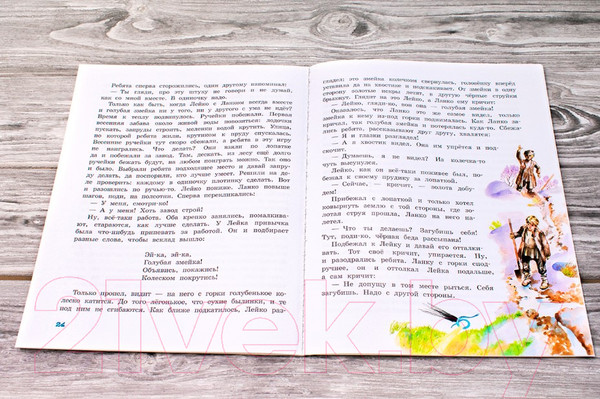 Ребята сперва сторожились, один другому напоминал:
— Ты гляди, про эту штуку не говори и не думай,
как со мной вместе. В одиночку надо.
Только как быть, когда Лейко с Ланком всегда вместе
и голубая змейка ни у того, ни у другого с ума не идёт?
Время к теплу подвинулось. Ручейки побежали. Первая
весенняя забава около живой воды повозиться: лодочки
пускать, запруды строить, меленки водой крутить. Улица,
по которой ребята жили, крутиком к пруду спускалась.
Весенние ручейки тут скоро сбежали, а ребята в эту игру
не наигрались. Что делать? Они взяли по лопатке
да и побежали за завод. Там, дескать, из лесу ещё долго
ручейки бежать будут, на любом поиграть можно. Так оно
и было. Выбрали ребята подходящее место и давай запру-
ду делать, да поспорили, кто лучше умеет. Решили на де-
ле проверить: каждому в одиночку плотинку сделать. Вот
и разошлись по ручью-то. Лейко пониже, Ланко повыше
шагов, поди, на полсотни. Сперва перекликались:
— У меня, смотри-ко!
— А у меня! Хоть завод строй!
Ну, всё-таки работа. Оба крепко занялись, помалкива-
ют, стараются, как лучше сделать. У Лейка привычка
была что-нибудь припевать за работой. Он и подбирает
разные слова, чтобы всклад вышло:
Эй-ка, эй-ка,
Голубая змейка!
Объявись, покажись!
Колеском покрутись!
Только пропел, видит — на него с горки голубенькое ко-
леско катится. До того лёгонькое, что сухие былинки, и те
под ним не сгибаются. Как ближе подкатилось, Лейко раз-
24
глядел: это змейка колечком свернулась, головёнку вперёд
уставила да на хвостике и подскакивает. От змейки в одну
сторону золотые искры летят, в другую чёрные струйки
брызжут. Глядит на это Лейко, а Ланко ему кричит:
— Лейко, гляди-ко, вон она — голубая змейка!
Оказалось, что Ланко это же самое видел, только
змейка к нему из-под горки поднималась. Как Ланко за-
кричал, так голубая змейка и потерялась куда-то. Сбежа-
лись ребята, рассказывают друг другу, хвалятся:
— Я и глазки разглядел!
— А я хвостик видел. Она им упрётся и под-
скочит.
— Думаешь, я не видел? Из колечка-то
чуть высунулся.
Лейко, как он всё-таки поживее был, по-
бежал к своему прудику за лопаткой.
— Сейчас, — кричит, — золота добу-
дем!
Прибежал с лопаткой и только хотел
ковырнуть землю с той стороны, где зо-
лотая струя прошла, Ланко на него на-
летел.
— Что ты делаешь? Загубишь себя!
Тут, поди-ко, чёрная беда рассыпана!
Подбежал к Лейку и давай его отталки-
вать. Тот своё кричит, упирается. Ну,
и раздорились ребята. Ланку с горки спод-
ручнее, он и оттолкал Лейка подальше,
а сам кричит:
— Не допущу в том месте рыться. Себя
загубишь. Надо с другой стороны.
21vek.by